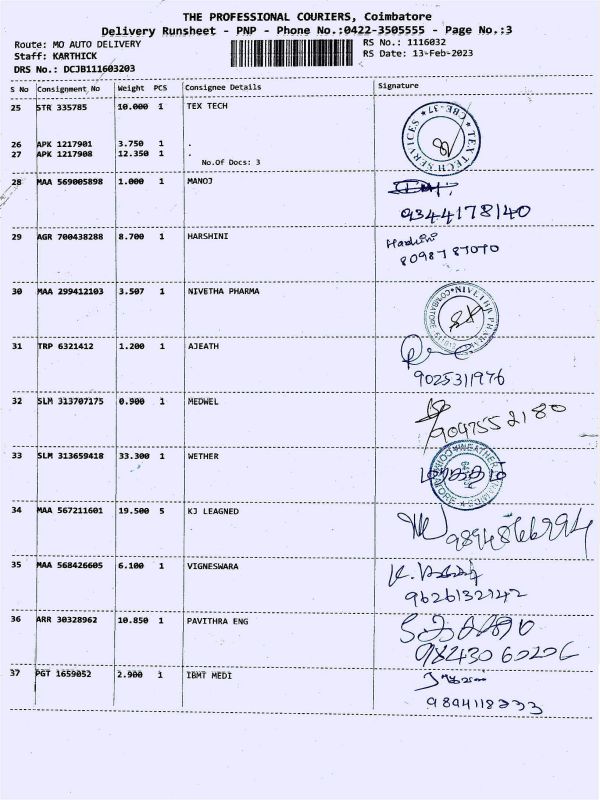 THE PROFESSIONAL COURIERS, Coimbatore
Delivery Runsheet - PNP - Phone No.:0422-3505555 - Page No.:3
Route: MO AUTO DELIVERY RS No.: 1116032
Staff: KARTHICK RS Date: 13-Feb-2023
DRS No.: DCJB111603203
S No Consignment No Weight PCS Consignee Details Signature
25 STR 335785 10.000 1 TEX TECH
TEX TECH SERVICES CBE-37
26 APK 1217901 3.750 1 .
27 APK 1217908 12.350 1 .
No.Of Docs: 3
28 MAA 569005898 1.000 1 MANOJ
9344178140
29 AGR 700438288 8.700 1 HARSHINI
Harshini
8098787070
30 MAA 299412103 3.507 1 NIVETHA PHARMA
NIVETHA PHARMA COIMBATORE
31 TRP 6321412 1.200 1 AJEATH
9025311976
32 SLM 313707175 0.900 1 MEDWEL
9047552180
33 SLM 313659418 33.300 1 WETHER
34 MAA 567211601 19.500 5 KJ LEAGNED
35 MAA 568426605 6.100 1 VIGNESWARA
9626132142
36 ARR 30328962 10.850 1 PAVITHRA ENG
37 PGT 1659052 2.900 1 IBMT MEDI